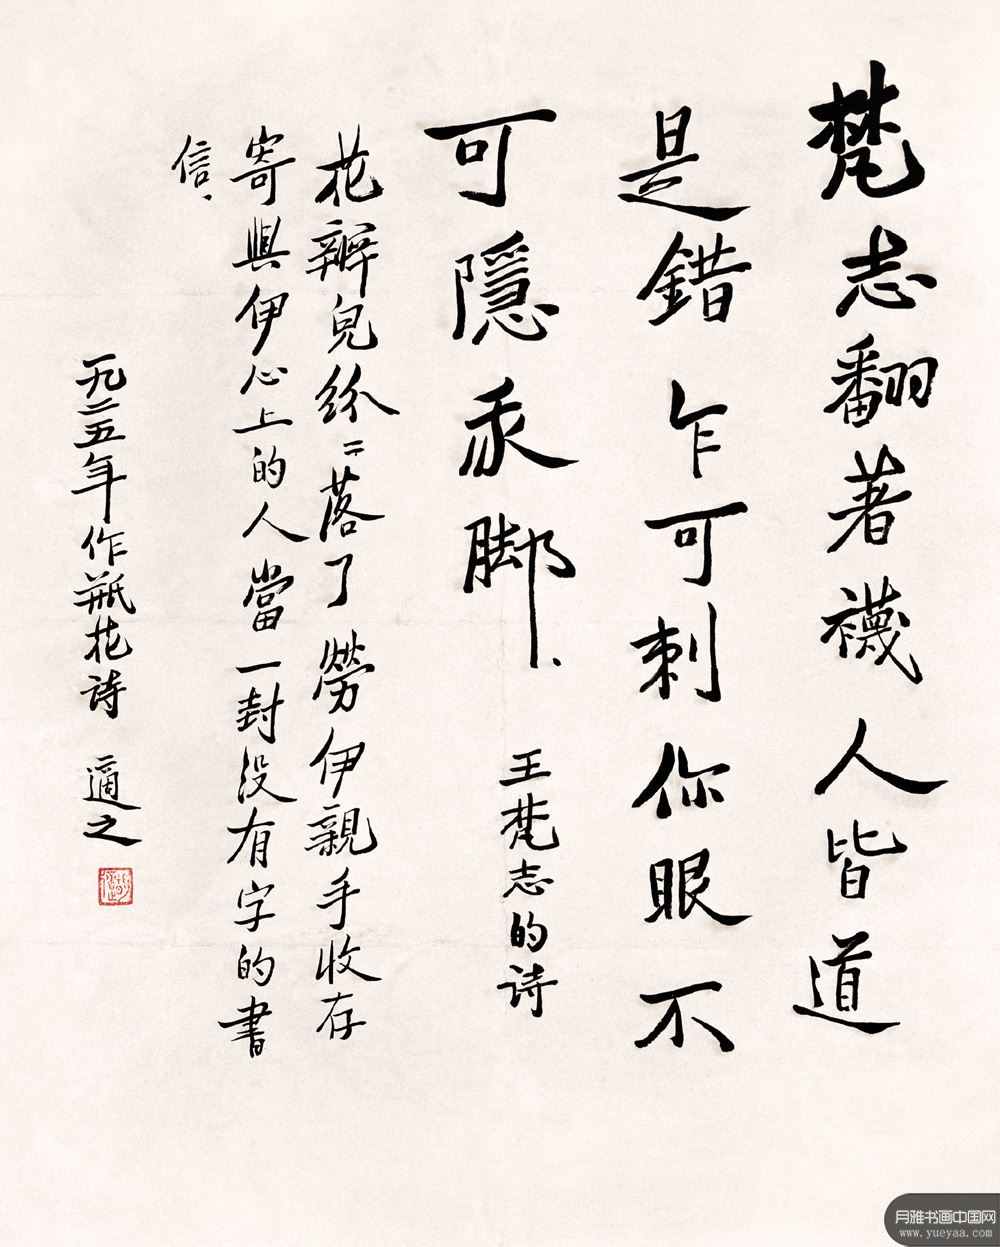 梵志翻著襪人皆道
是錯乍可刺你眼不
可隱我脚、
王梵志的詩
花瓣兒紛〻落了勞伊親手收存
寄與伊心上的人當一封没有字的書
信、
一九二五年作瓶花詩 適之
月雅书画中国网
www.yueyaa.com